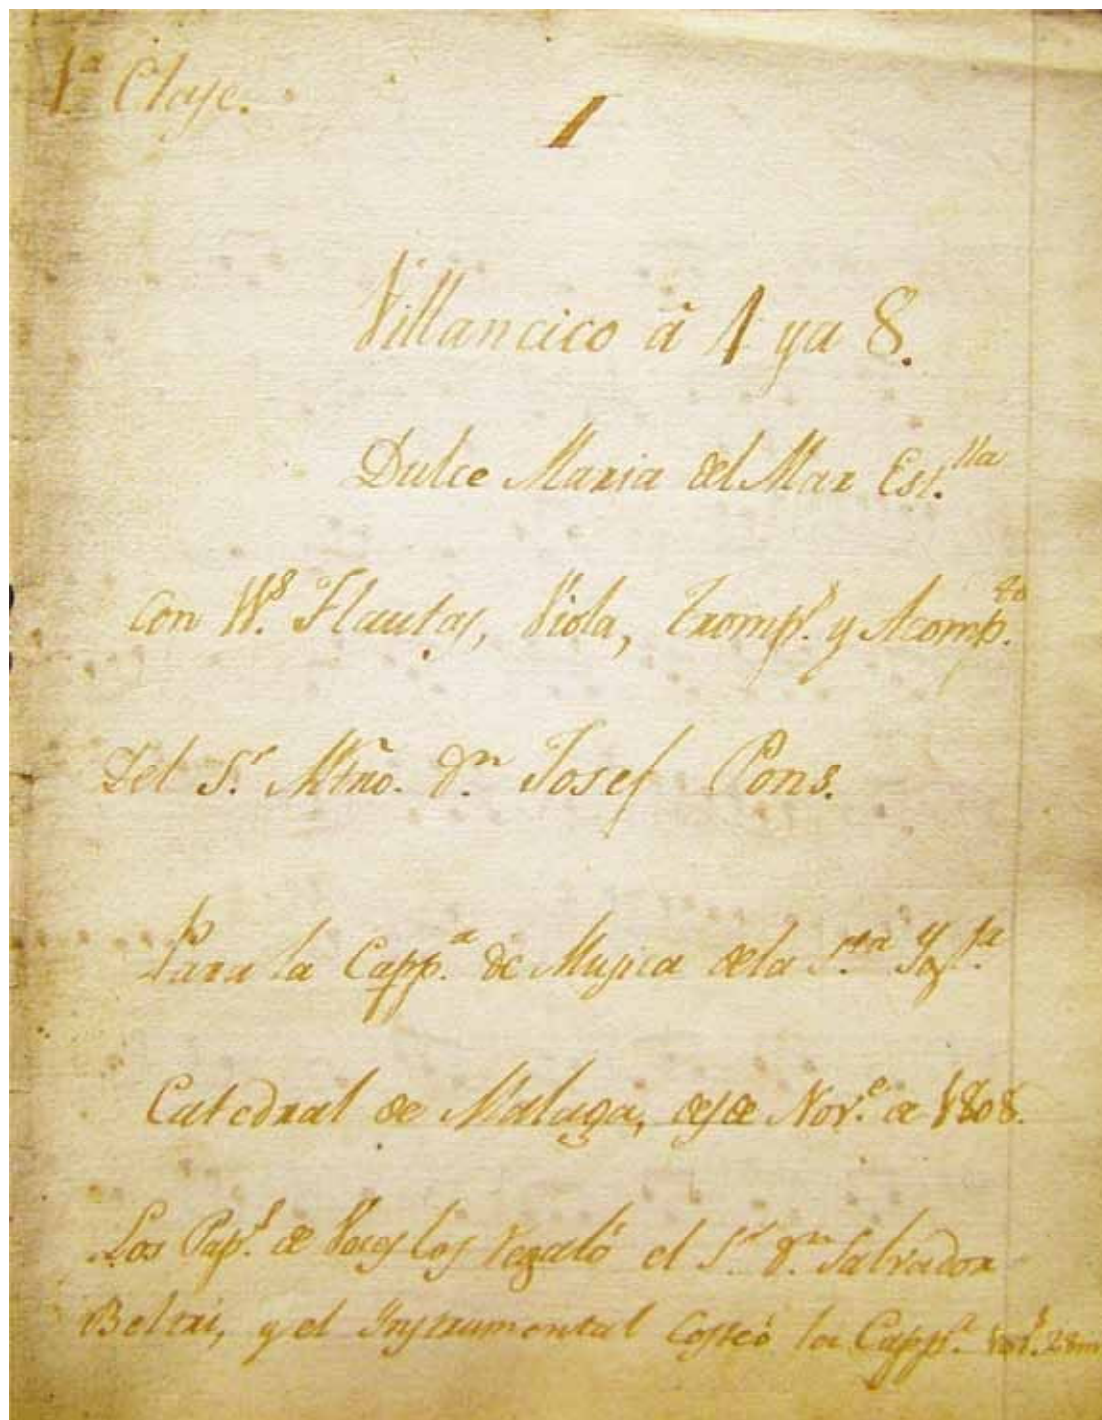 1ª Clase.
1
Villancico â 4 y a 8.
Dulce Maria del Mar Est.lla
Con V.s Flautas, Viola, Tromp.s y Acomp.to
Del S.r Mtrō. D.n Josef Pons.
Para la Capp.a de Musica de la S.ta Ygl.a
Catedral de Malaga, desde Nov.e de 1808.
Los Pap.s de Voces los regaló el S.r D.n Salvador
Beltri, y el Instrumental Costeó la Capp.a